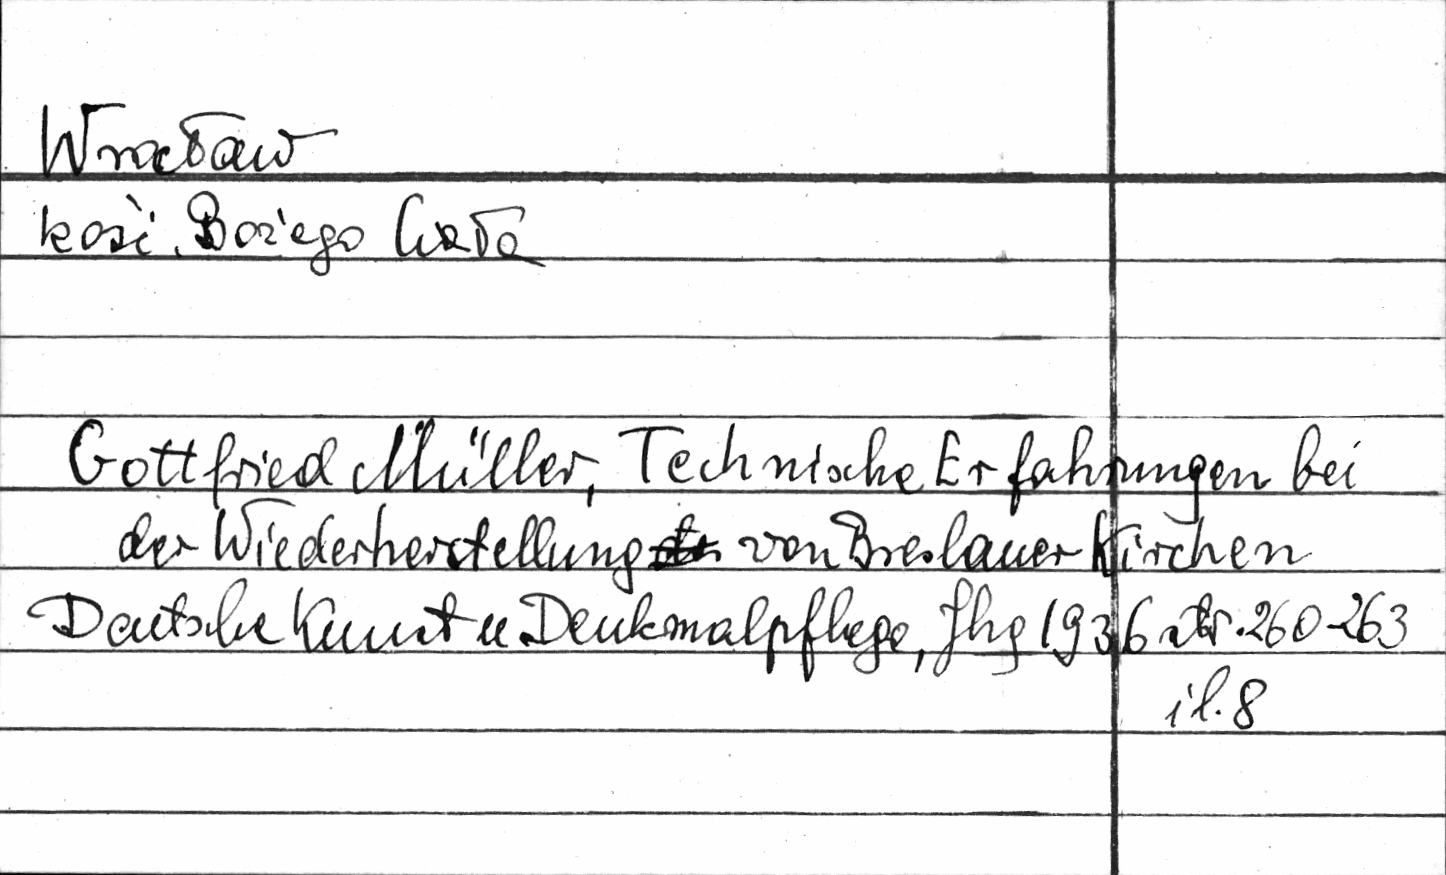 Wrocław
kość. Bożego Ciała
Gottfried Müller, Technische Erfahrungen bei
der Wiederherstellung von Breslauer Kirchen
Deutsche Kunst u Denkmalpflege, Jhg 1936 str. 260-263
il. 8